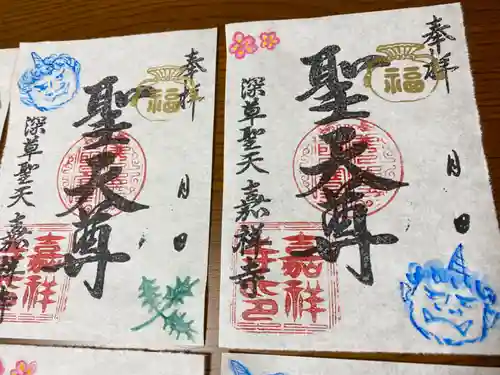 奉拝
福
聖天尊
月 日
深草聖天 嘉祥寺
嘉祥
奉拝
福
聖天尊
月 日
深草聖天 嘉祥寺
嘉祥